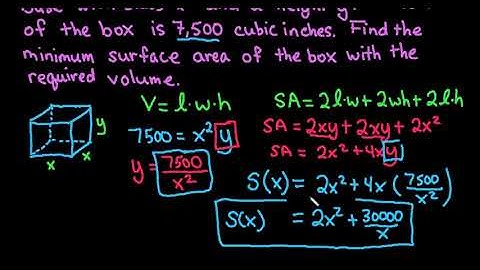 of the box is 7,500 cubic inches. Find the
minimum surface area of the box with the
required volume.
V = l·w·h
SA = 2l·w + 2wh + 2l·h
7500 = x² y
SA = 2xy + 2xy + 2x²
SA = 2x² + 4xy
y = 7500/x²
y
x
x
S(x) = 2x² + 4x (7500/x²)
S(x) = 2x² + 30000/x